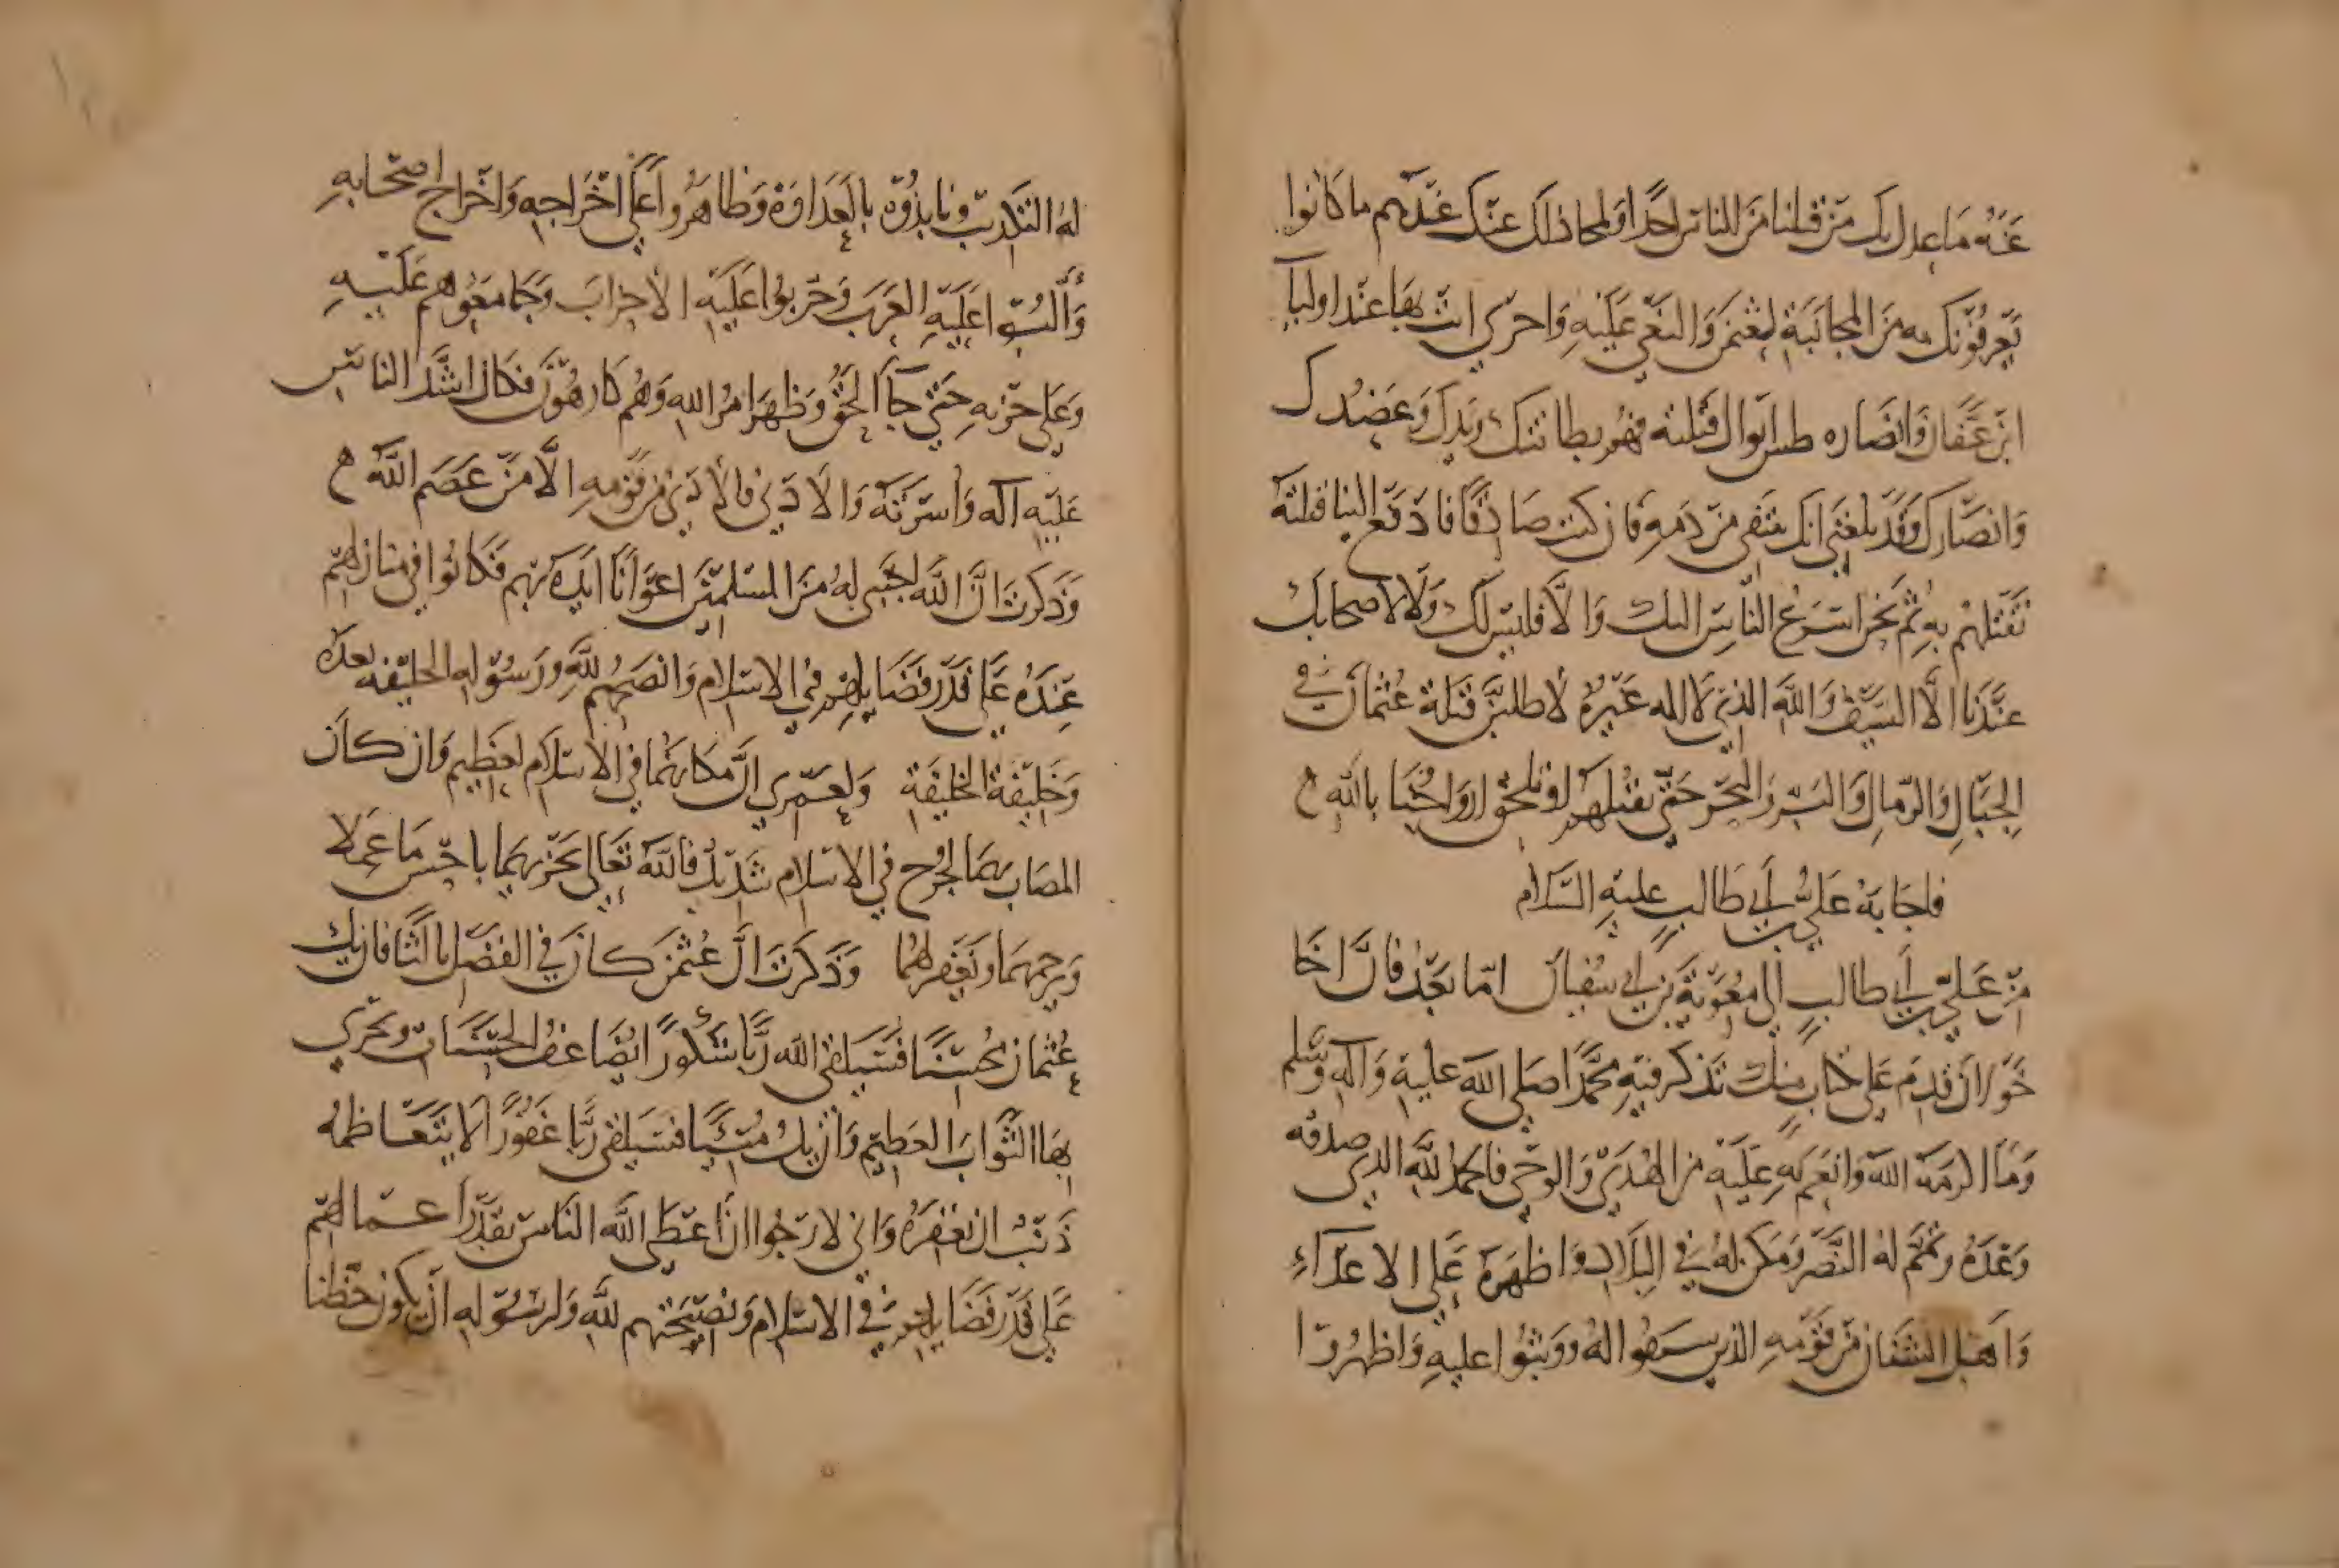 عَنْهُ مَا عدل بك مَنْ قبلنا مَنَ الناس احدًا ولمحا ذلك عنك عندهم ما كانوا
يَعرفونك به مَنَ المجانبَة لعثمن وَالبَغْي عَلَيْهِ وَاخرى انت بهَا عنْد اوليآ
ابن عَفّان وَانصاره ظنين ايوال قتلته فهُم بطانتك ويَدك وَعَضُدك
وَانصَارك وَقَد بلغَنى انك تنتفي مِنْ دَمهِ فَان كنت صَادقًا فادفع الينا قتلته
نَقْتلهُم بهِ ثم نحن اسَرعُ النّاسِ اليك وَالا فليْس لك ولَا لاصحابك
عنْدَنا الَّا السَيْف وَاللَّه الذي لَا اله غَيْرهُ لَاطلبَنَّ قتَلَة عُثمان في
الِجبَالِ وَالرّمالِ وَالبَرّ وَالبَحْر حَتّى نقتلهُم او تلحق ارواحُنَا باللَّهِ ۾
فاجَابَهُ عَليُّ بن أبي طَالب عليهِ السَّلام
مِنْ عَليّ بن أبي طالبٍ إلى مُعَوِيَة بن أبي سُفيان امّا بَعْدُ فَانّ اخَا
خَوْلان قدِمَ عَلَى بكتابٍ منك تذكر فيهِ مُحمّدًا صَلى اللَّه عليهِ وَآلهِ وسَّلم
وَمَا اكرمهُ اللَّه وَانعم بهِ عليْهِ من الهُدَى وَالوحْي فالحمدُ للَّهِ الذي صدقه
وَعْدَهُ وتمَّم لهُ النَّصْر وَمَكن لهُ في البلَاد وَاظهَرهُ عَلى الاعدَآءِ
وَاهْل الشنَان مِنْ قَوْمهِ الذين سعَوا لهُ ووثبُوا عليهِ وَاظهرُوا
لهُ التكذيب ونابذُوهُ بالعَدَاوَة وَظَاهرُوا عَلَى اخْرَاجه وَاخْراج اصْحابهِ
وَألّبُوا عَليْهِ العَرَبَ وَحزبُوا عَليَهِ الأحزابَ وَجَامعُوهم عَليْهِ
وَعَلى حَرْبهِ حَتى جَآ الحَقّ وَظهَر امرُ اللهِ وَهُم كارهُونَ فكان اشَدَّ الناسِ
عَليْهِ اله وَاسْرَتهُ وَالأدَنى فالأدَنى مِن قوْمهِ الَّا مَنْ عَصَم اللَّهُ ۾
وَذكرتَ انَّ اللَّه اجْتبى لهُ مَنَ المسْلميْنَ اعوَانًا ايّدهُ بهِم فكانُوا في منازلهِم
عنْدَهُ عَلى قدْر فَضَايلهم في الاسْلام وَانصَحهُم للَّهِ ورَسُوله الخليفَه بعدَهُ
وَخَليْفة الخليفَة وَلعَمْري انّ مكَانهُما في الأسْلَام لعَظِيم وَان كان
المصَاب بهمَا لجُرْح في الاسْلام شَديدٌ فاللَّهُ تَعَالى يَجْزيهمَا باحْسَن مَا عَملا
وَيَرحمهمَا ويَغفر لهُما وَذَكرْتَ انّ عُثمَن كان في الفضْل ثالثًا فان يك
عُثمان مُحْسنًا فسَيَلقى اللَّه رَبًّا شَكُورًا يُضاعفُ الحسَنَات ويَجْزي
بهَا الثّوابَ العَظِيْم وَان يكُ مُسِيئًا فسَيَلقى رَبًّا غَفُورًا لَا يتعَاظمُهُ
ذَنْبٌ ان يَغفرَهُ وَاني لارجُوا اذَا اعْطى اللَّه النَاس بقَدْر اعمالهم
عَلى قَدْر فَضَايلهم في الاسْلَام وَنصيْحَتهم للَّهِ وَلرَسُوله انْ يكُون حَظنا